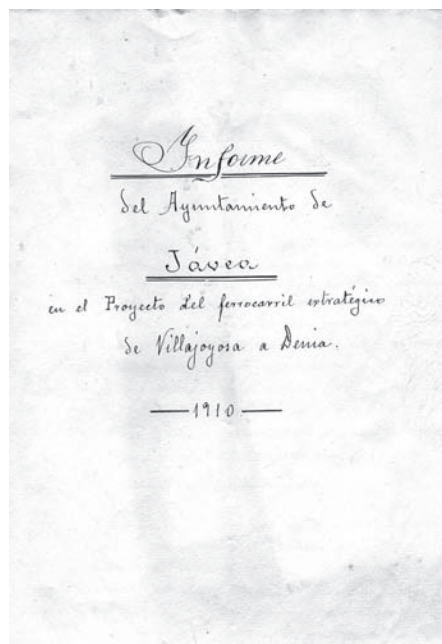 Informe
del Ayuntamiento de
Jávea
en el Proyecto del ferrocarril estratégico
de Villajoyosa a Denia.
1910